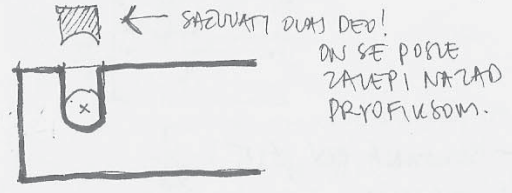 SAČUVATI OVAJ DEO!
ON SE POSLE
ZALEPI NAZAD
PRVOFIKSOM.
x